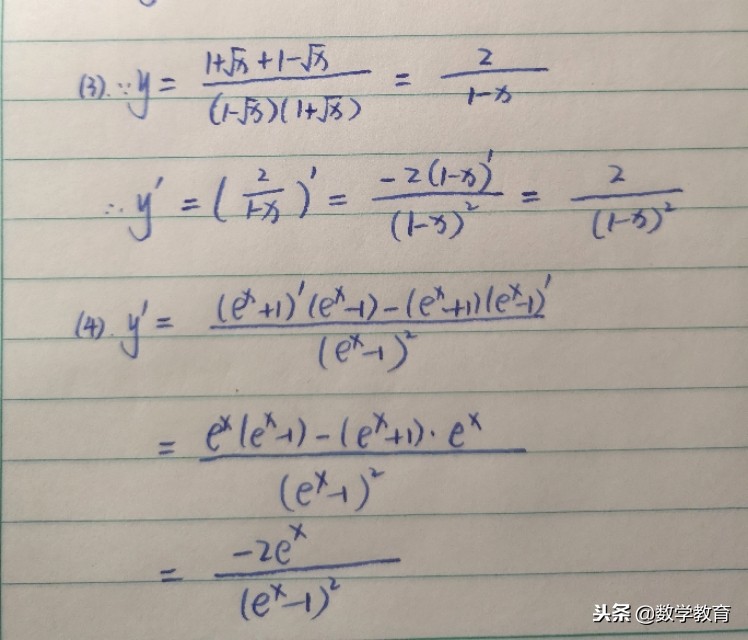 (3). ∵ y = \frac{1+\sqrt{x}+1-\sqrt{x}}{(1-\sqrt{x})(1+\sqrt{x})} = \frac{2}{1-x}
∴ y' = (\frac{2}{1-x})' = \frac{-2(1-x)'}{(1-x)^2} = \frac{2}{(1-x)^2}
(4). y' = \frac{(e^x+1)'(e^x-1)-(e^x+1)(e^x-1)'}{(e^x-1)^2}
= \frac{e^x(e^x-1)-(e^x+1)·e^x}{(e^x-1)^2}
= \frac{-2e^x}{(e^x-1)^2}
头条 @数学教育